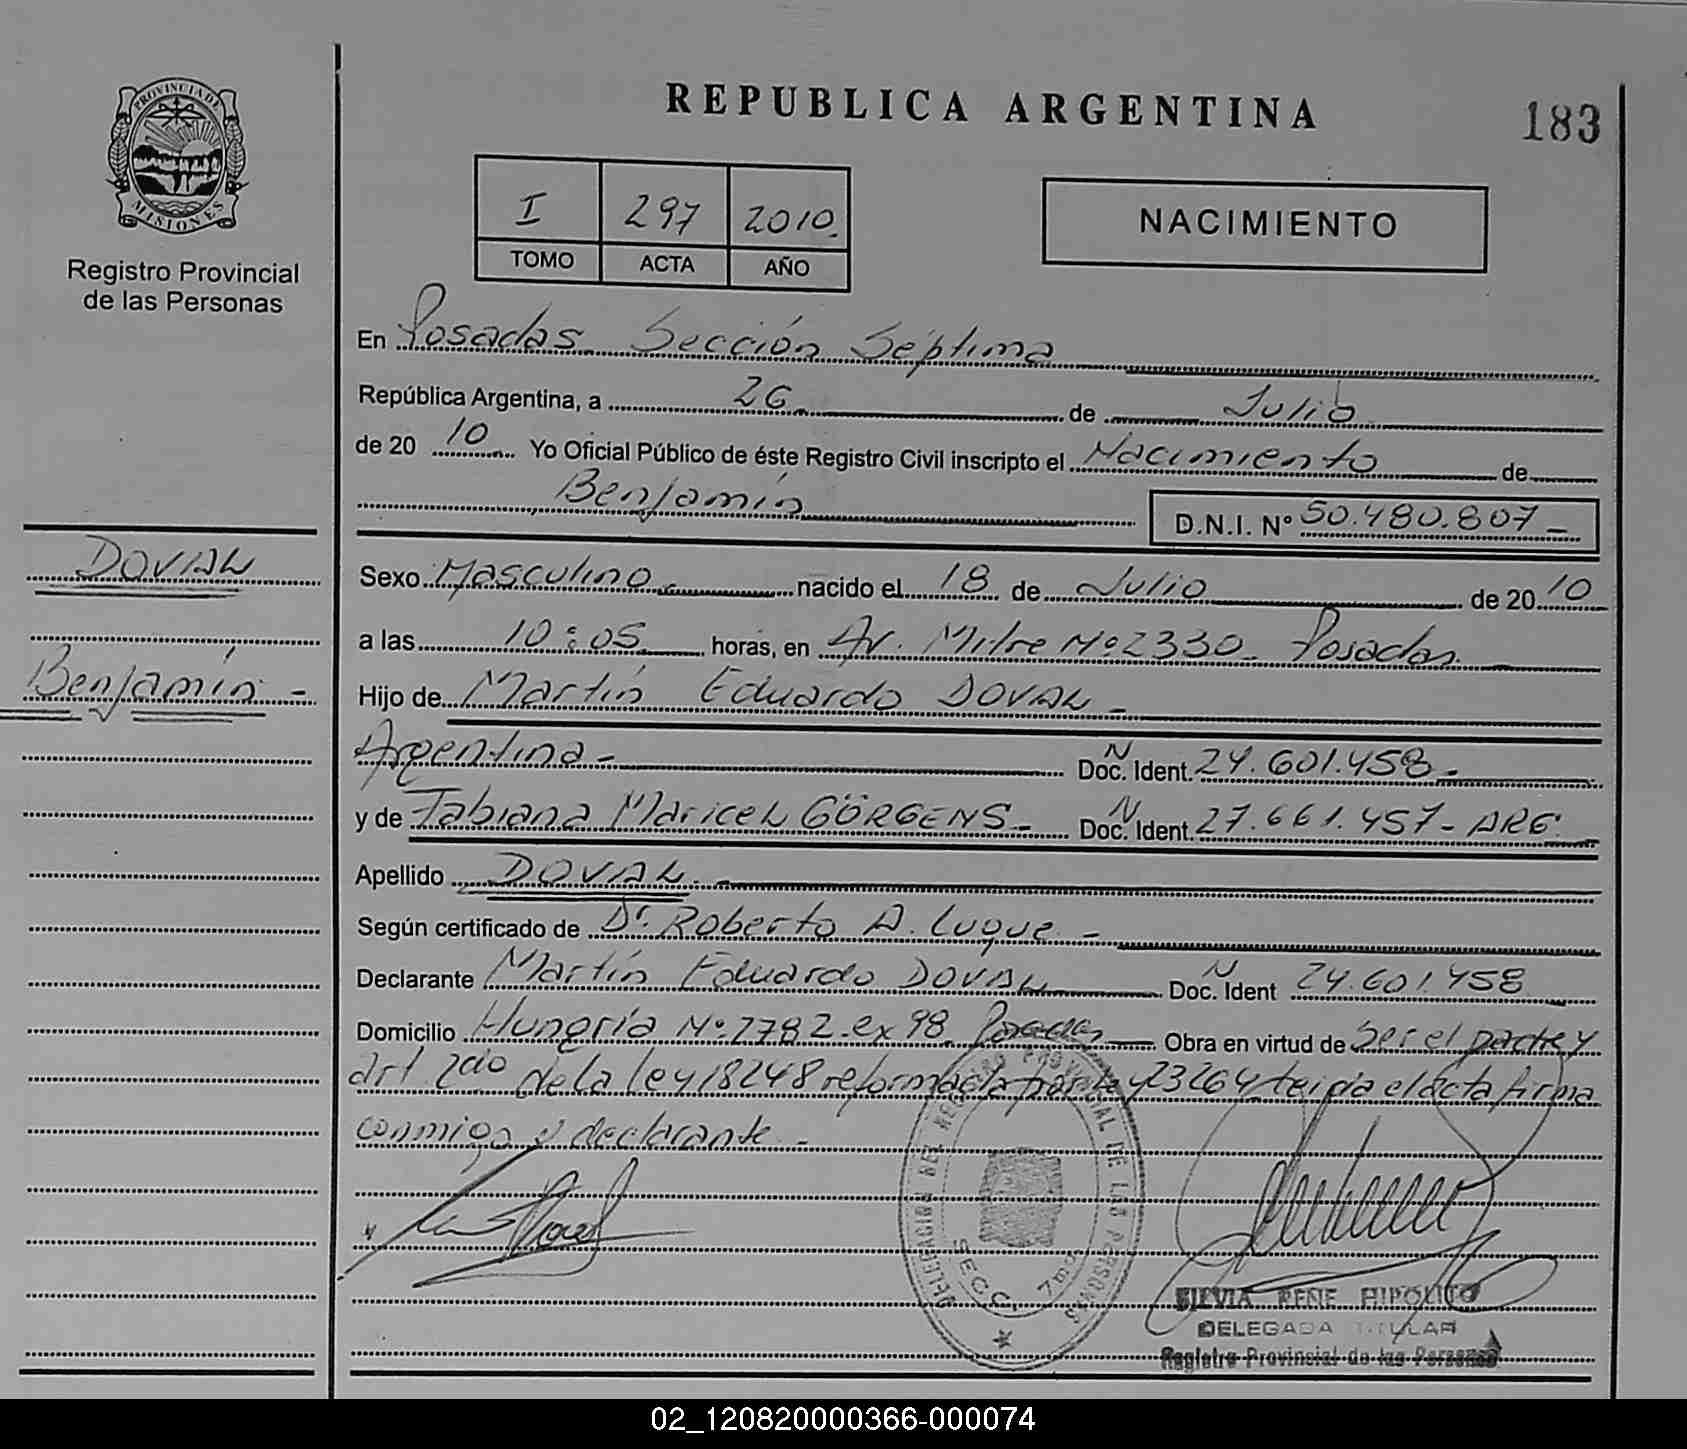 PROVINCIA DE
MISIONES
Registro Provincial
de las Personas
REPUBLICA ARGENTINA
183
I 297 2010.
TOMO ACTA AÑO
NACIMIENTO
En Posadas Sección Séptima
República Argentina, a 26 de Julio
de 20 10 Yo Oficial Público de éste Registro Civil inscripto el Nacimiento de
Benjamín
D.N.I. Nº 50.480.807-
DOVAL
Benjamín-
Sexo Masculino nacido el 18 de Julio de 20 10
a las 10:05 horas, en Av. Mitre Nº 2330- Posadas.
Hijo de Martín Eduardo DOVAL-
Argentina- N Doc. Ident. 24.601.458-
y de Fabiana Maricel GÖRGENS- N Doc. Ident. 27.661.457- ARG.
Apellido DOVAL.-
Según certificado de Dr. Roberto A. Luque.-
Declarante Martín Eduardo DOVAL N Doc. Ident 24.601.458
Domicilio Hungría Nº 2782-ex 98. Posadas Obra en virtud de Ser el padre y
art 2cio de la ley 18248 reformada por ley 23264 leida el acta firma
conmigo y declarante-
DELEGACION DEL REGISTRO PROVINCIAL DE LAS PERSONAS
SECC. 7ma
SILVIA RENE HIPOLITO
DELEGADA TITULAR
Registro Provincial de las Personas
02_120820000366-000074